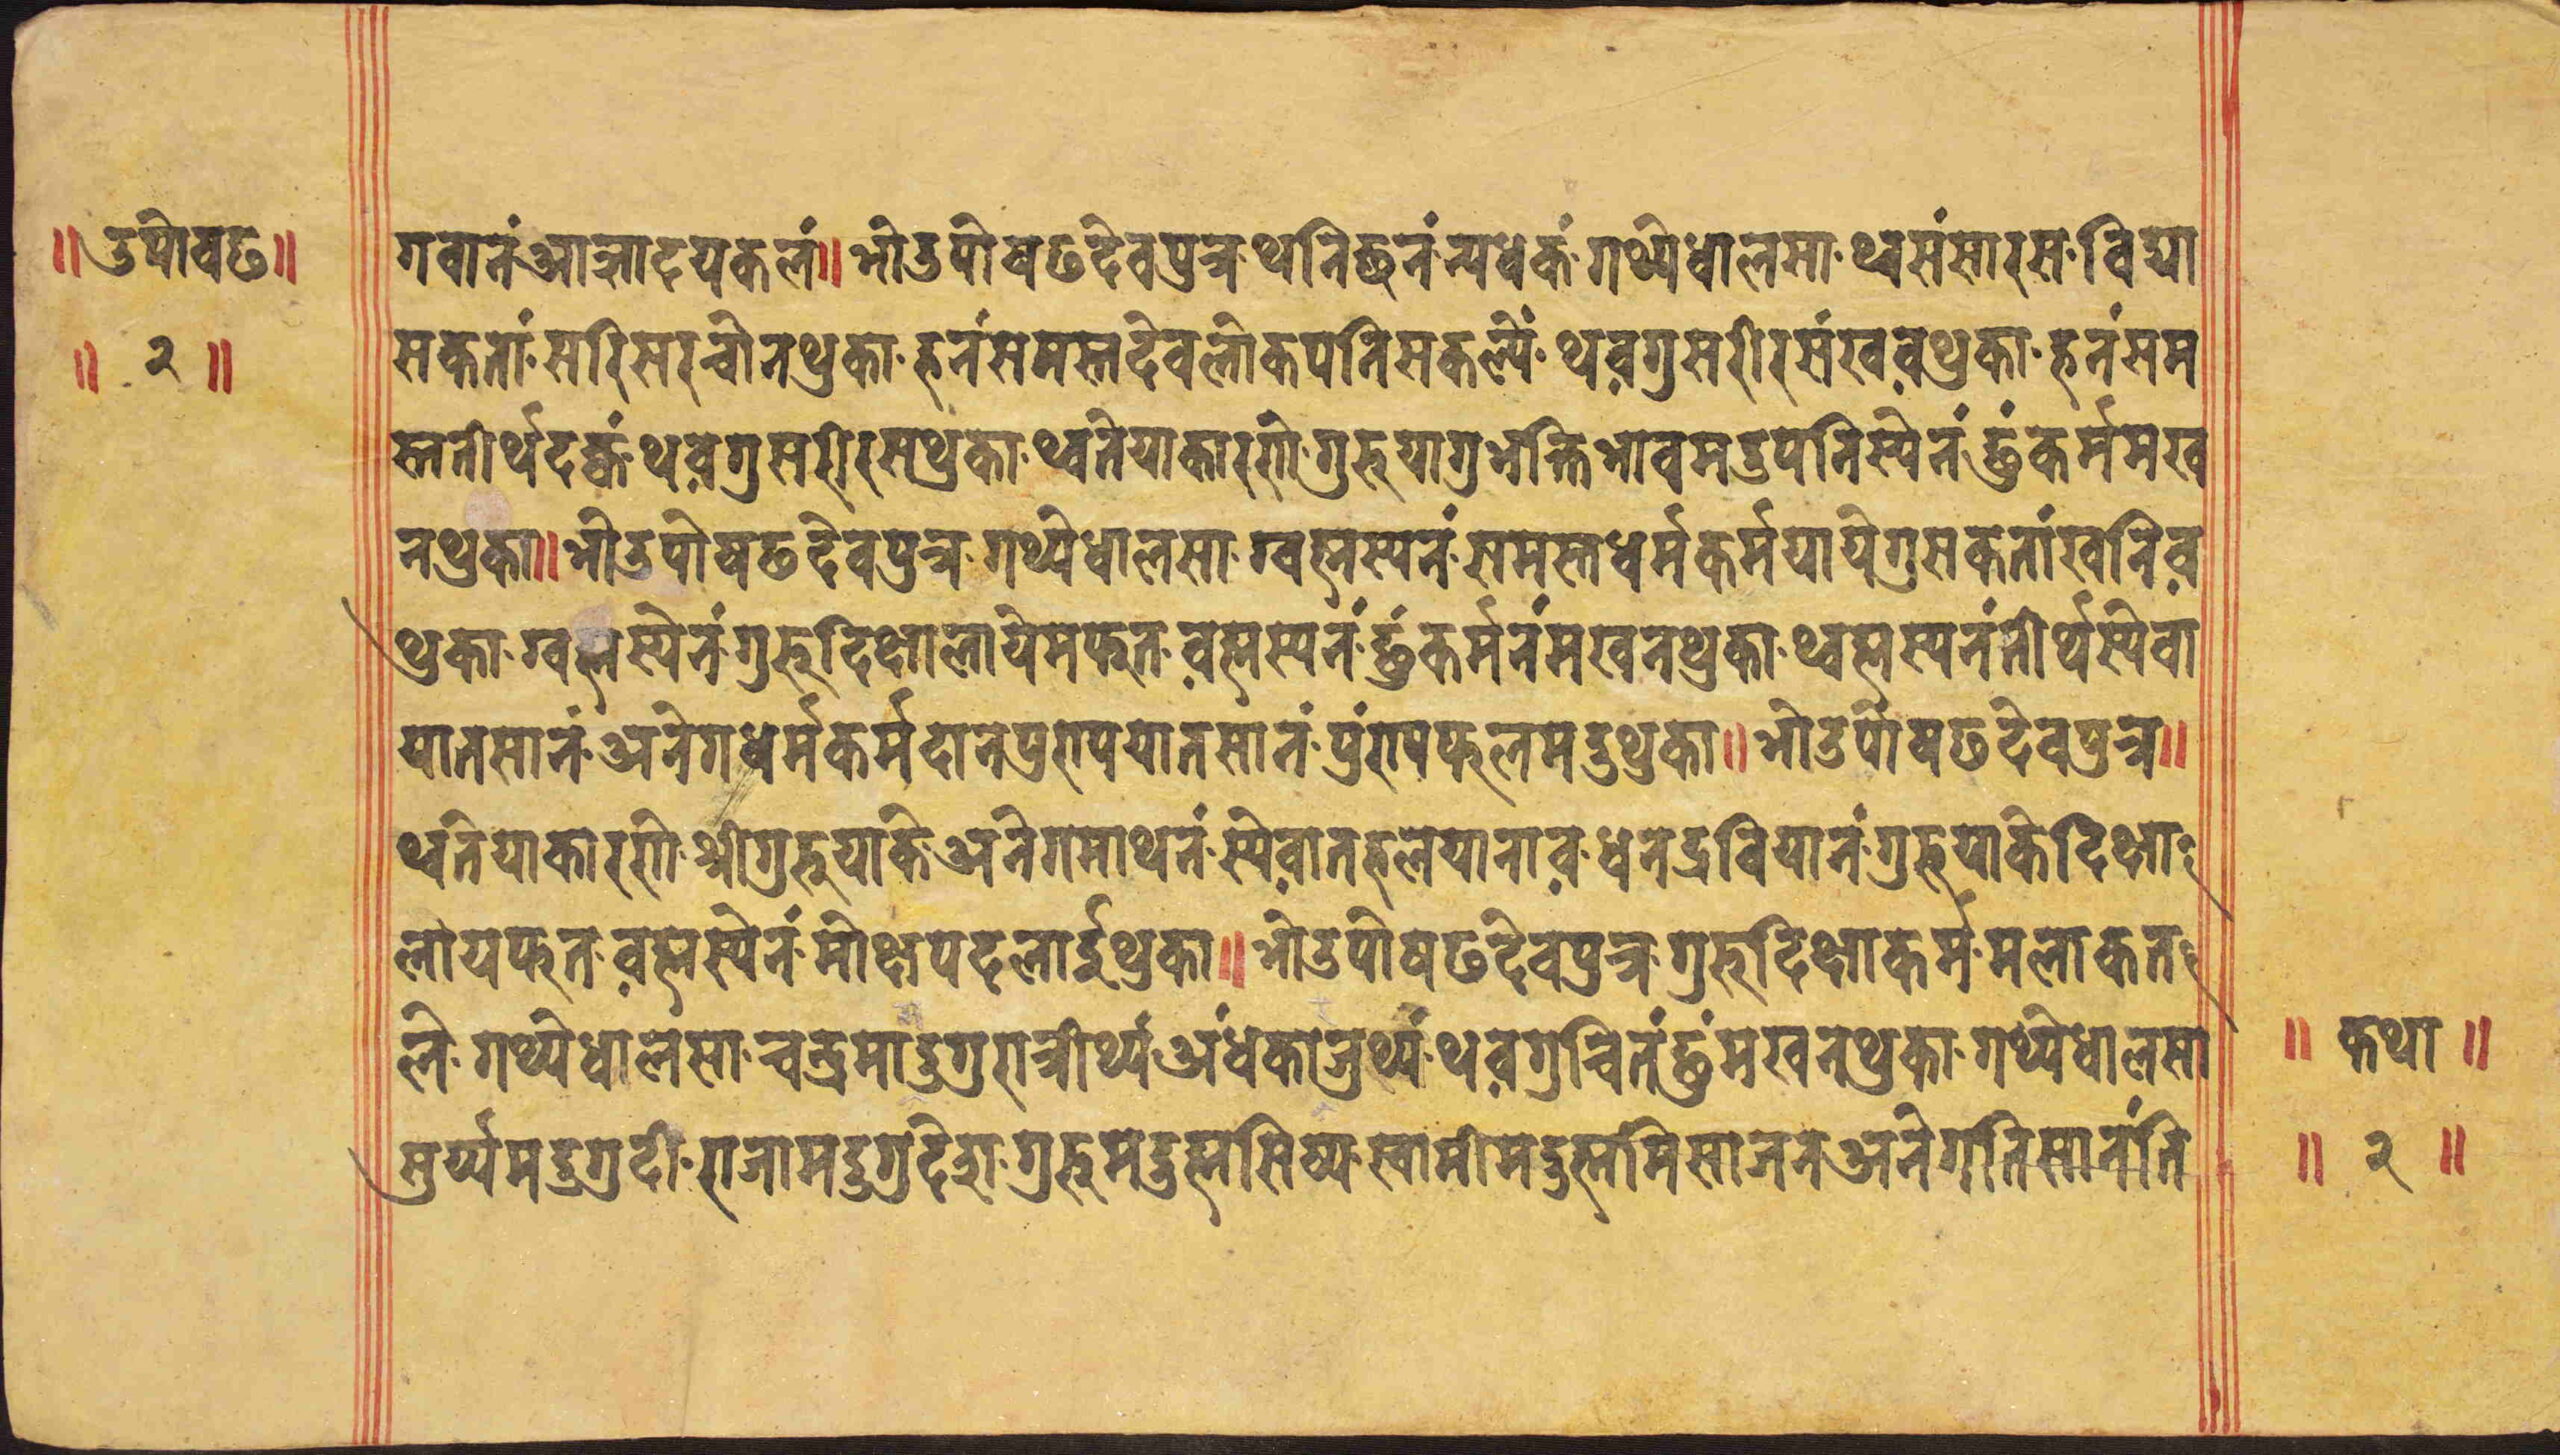 ॥उपोषढ॥
॥ २ ॥
गवानं आज्ञादयकलं॥भोउपोषढदेवपुत्र थनिछनं न्यधकं गथ्येधालसा थ्वसंसारस विद्या
सकतां सरिसरन्वोनथुका हनंसमस्तदेवलोकपनिसकल्यें थव़गुसरीरसंखव़थुका हनंसम
स्ततीर्थदक्वं थव़गुसरीरसथुका थ्वतेयाकारणे गुरूयागुभक्तिभावमदुपनिस्येनं छुंकर्ममख
नथुका॥भोउपोषढदेवपुत्र गथ्येधालसा ग्वह्मस्यनं समस्तधर्मकर्मयायेगुसकतांखनिव़
थुका ग्वह्मस्येनं गुरूदिक्षालायेमफुत व़ह्मस्यनं छुंकर्मनंमखनथुका थ्वह्मस्यनंतीर्थस्येवा
यातसानं अनेगधर्मकर्मदानपुण्ययातसानं पुंण्यफलमदुथुका॥भोउपोषढदेवपुत्र॥
थ्वतेयाकारणे श्रीगुरूयाके अनेगमाथनं स्येव़ातहलयानाव़ धनद्रवियानं गुरूयाकेदिक्षा
लायफुत व़ह्मस्येनं मोक्षपदलाईथुका॥भोउपोषढदेवपुत्र गुरूदिक्षाकर्म मलाकत
ले गथ्येधालसा चन्द्रमादुगुरात्रीर्थ्यं अंधकाजुथ्यं थव़गुचितंछुंमखनथुका गथ्येधालसा
सुर्य्यमदुगुदी राजामदुगुदेश गुरूमदुह्मसिष्य स्वामीमदुह्ममिसाजन अनेगतिसानंति
॥ कथा ॥
॥ २ ॥